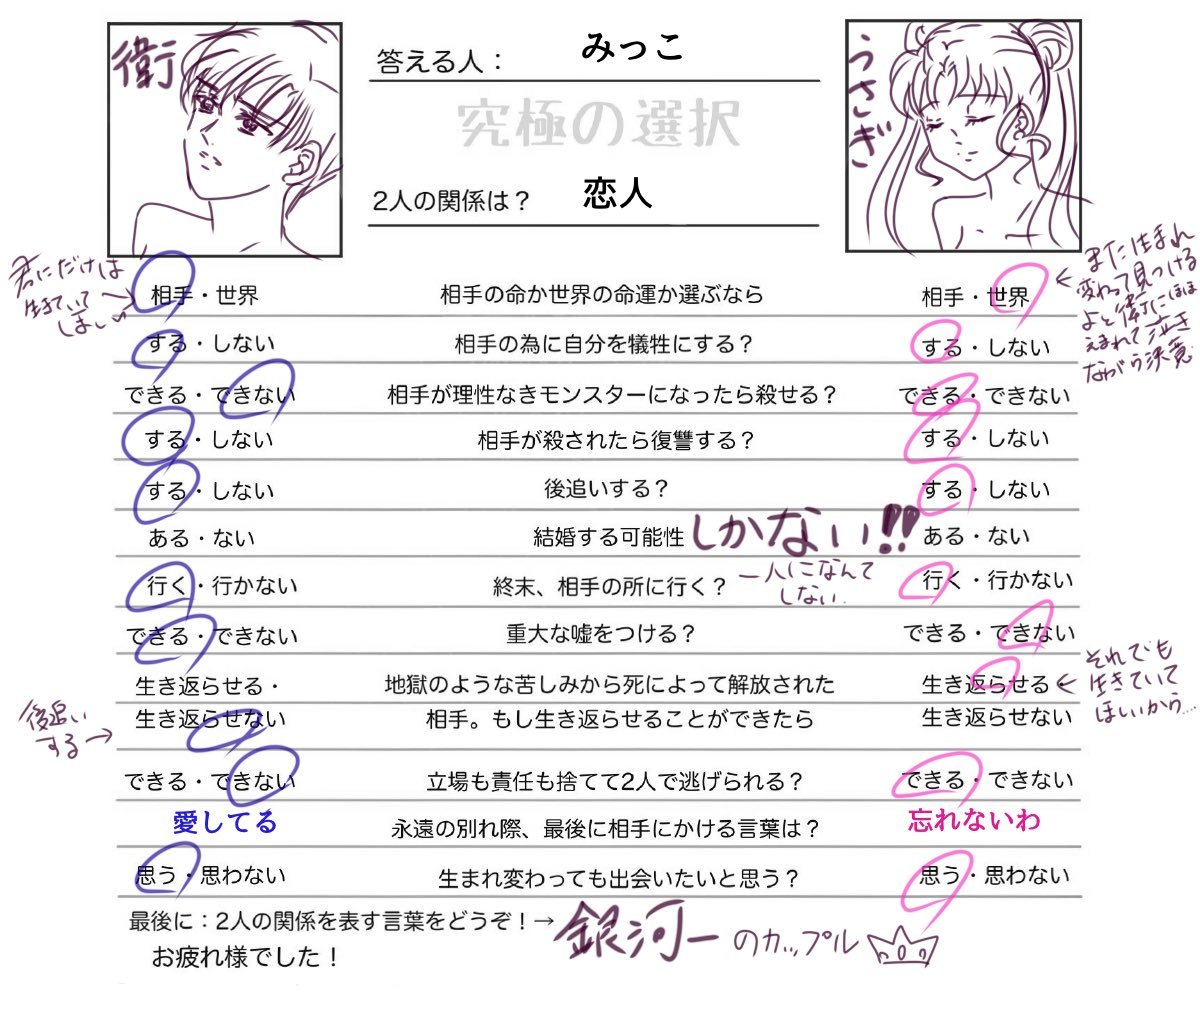 衛
答える人： みっこ
うさぎ
究極の選択
2人の関係は？ 恋人
君にだけは
生きていて
ほしい
また生まれ
変わって見つける
よと衛にほほ
えまれて泣き
ながら決意
相手・世界 相手の命か世界の命運か選ぶなら 相手・世界
する・しない 相手の為に自分を犠牲にする？ する・しない
できる・できない 相手が理性なきモンスターになったら殺せる？ できる・できない
する・しない 相手が殺されたら復讐する？ する・しない
する・しない 後追いする？ する・しない
ある・ない 結婚する可能性 しかない!! ある・ない
行く・行かない 終末、相手の所に行く？ 行く・行かない
一人になんて
しない
できる・できない 重大な嘘をつける？ できる・できない
生き返らせる・ 地獄のような苦しみから死によって解放された 生き返らせる・
生き返らせない 相手。もし生き返らせることができたら 生き返らせない
後追い
する→
それでも
生きていて
ほしいから…
できる・できない 立場も責任も捨てて2人で逃げられる？ できる・できない
愛してる 永遠の別れ際、最後に相手にかける言葉は？ 忘れないわ
思う・思わない 生まれ変わっても出会いたいと思う？ 思う・思わない
最後に：2人の関係を表す言葉をどうぞ！→ 銀河一のカップル
お疲れ様でした！